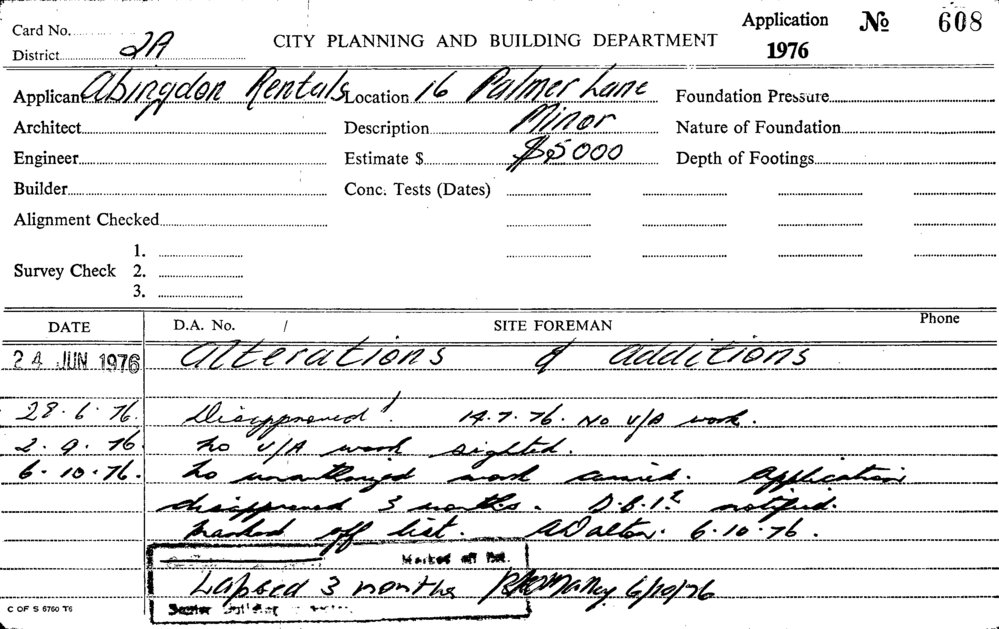 Card No. Application № 608
District 2A CITY PLANNING AND BUILDING DEPARTMENT 1976
Applicant Abingdon Rentals Location 16 Palmer Lane Foundation Pressure
Architect Description Minor Nature of Foundation
Engineer Estimate $ $5000 Depth of Footings
Builder Conc. Tests (Dates)
Alignment Checked
1.
Survey Check 2.
3.
DATE D.A. No. / SITE FOREMAN Phone
24 JUN 1976 Alterations & additions
28.6.76. Disapproved! 14.7.76. No U/A work.
2.9.76. No U/A work sighted.
6.10.76. No unauthorized work carried. Application
disapproved 3 months. D.B.I. notified.
Marked off list. ADalton. 6.10.76.
Marked off list.
Lapsed 3 months 6/10/76
Senior Building
C OF S 6760 T6